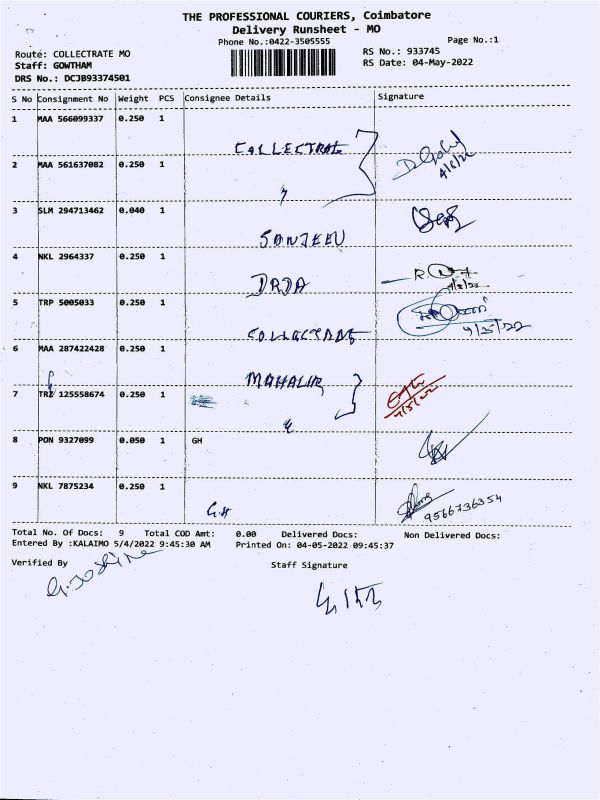 THE PROFESSIONAL COURIERS, Coimbatore
Delivery Runsheet - MO
Phone No.:0422-3505555 Page No.:1
Route: COLLECTRATE MO RS No.: 933745
Staff: GOWTHAM RS Date: 04-May-2022
DRS No.: DCJB93374501
S No Consignment No Weight PCS Consignee Details Signature
1 MAA 566099337 0.250 1
COLLECTRATE
2 MAA 561637082 0.250 1
3 SLM 294713462 0.040 1
SANJEEV
4 NKL 2964337 0.250 1
DRDA
5 TRP 5005033 0.250 1
COLLECTRATE 4/5/22
6 MAA 287422428 0.250 1
MAHALIR
7 TRZ 125558674 0.250 1 4/5/22
8 PON 9327099 0.050 1 GH
9 NKL 7875234 0.250 1
G.H 9566736354
Total No. Of Docs: 9 Total COD Amt: 0.00 Delivered Docs: Non Delivered Docs:
Entered By :KALAIMO 5/4/2022 9:45:30 AM Printed On: 04-05-2022 09:45:37
Verified By Staff Signature